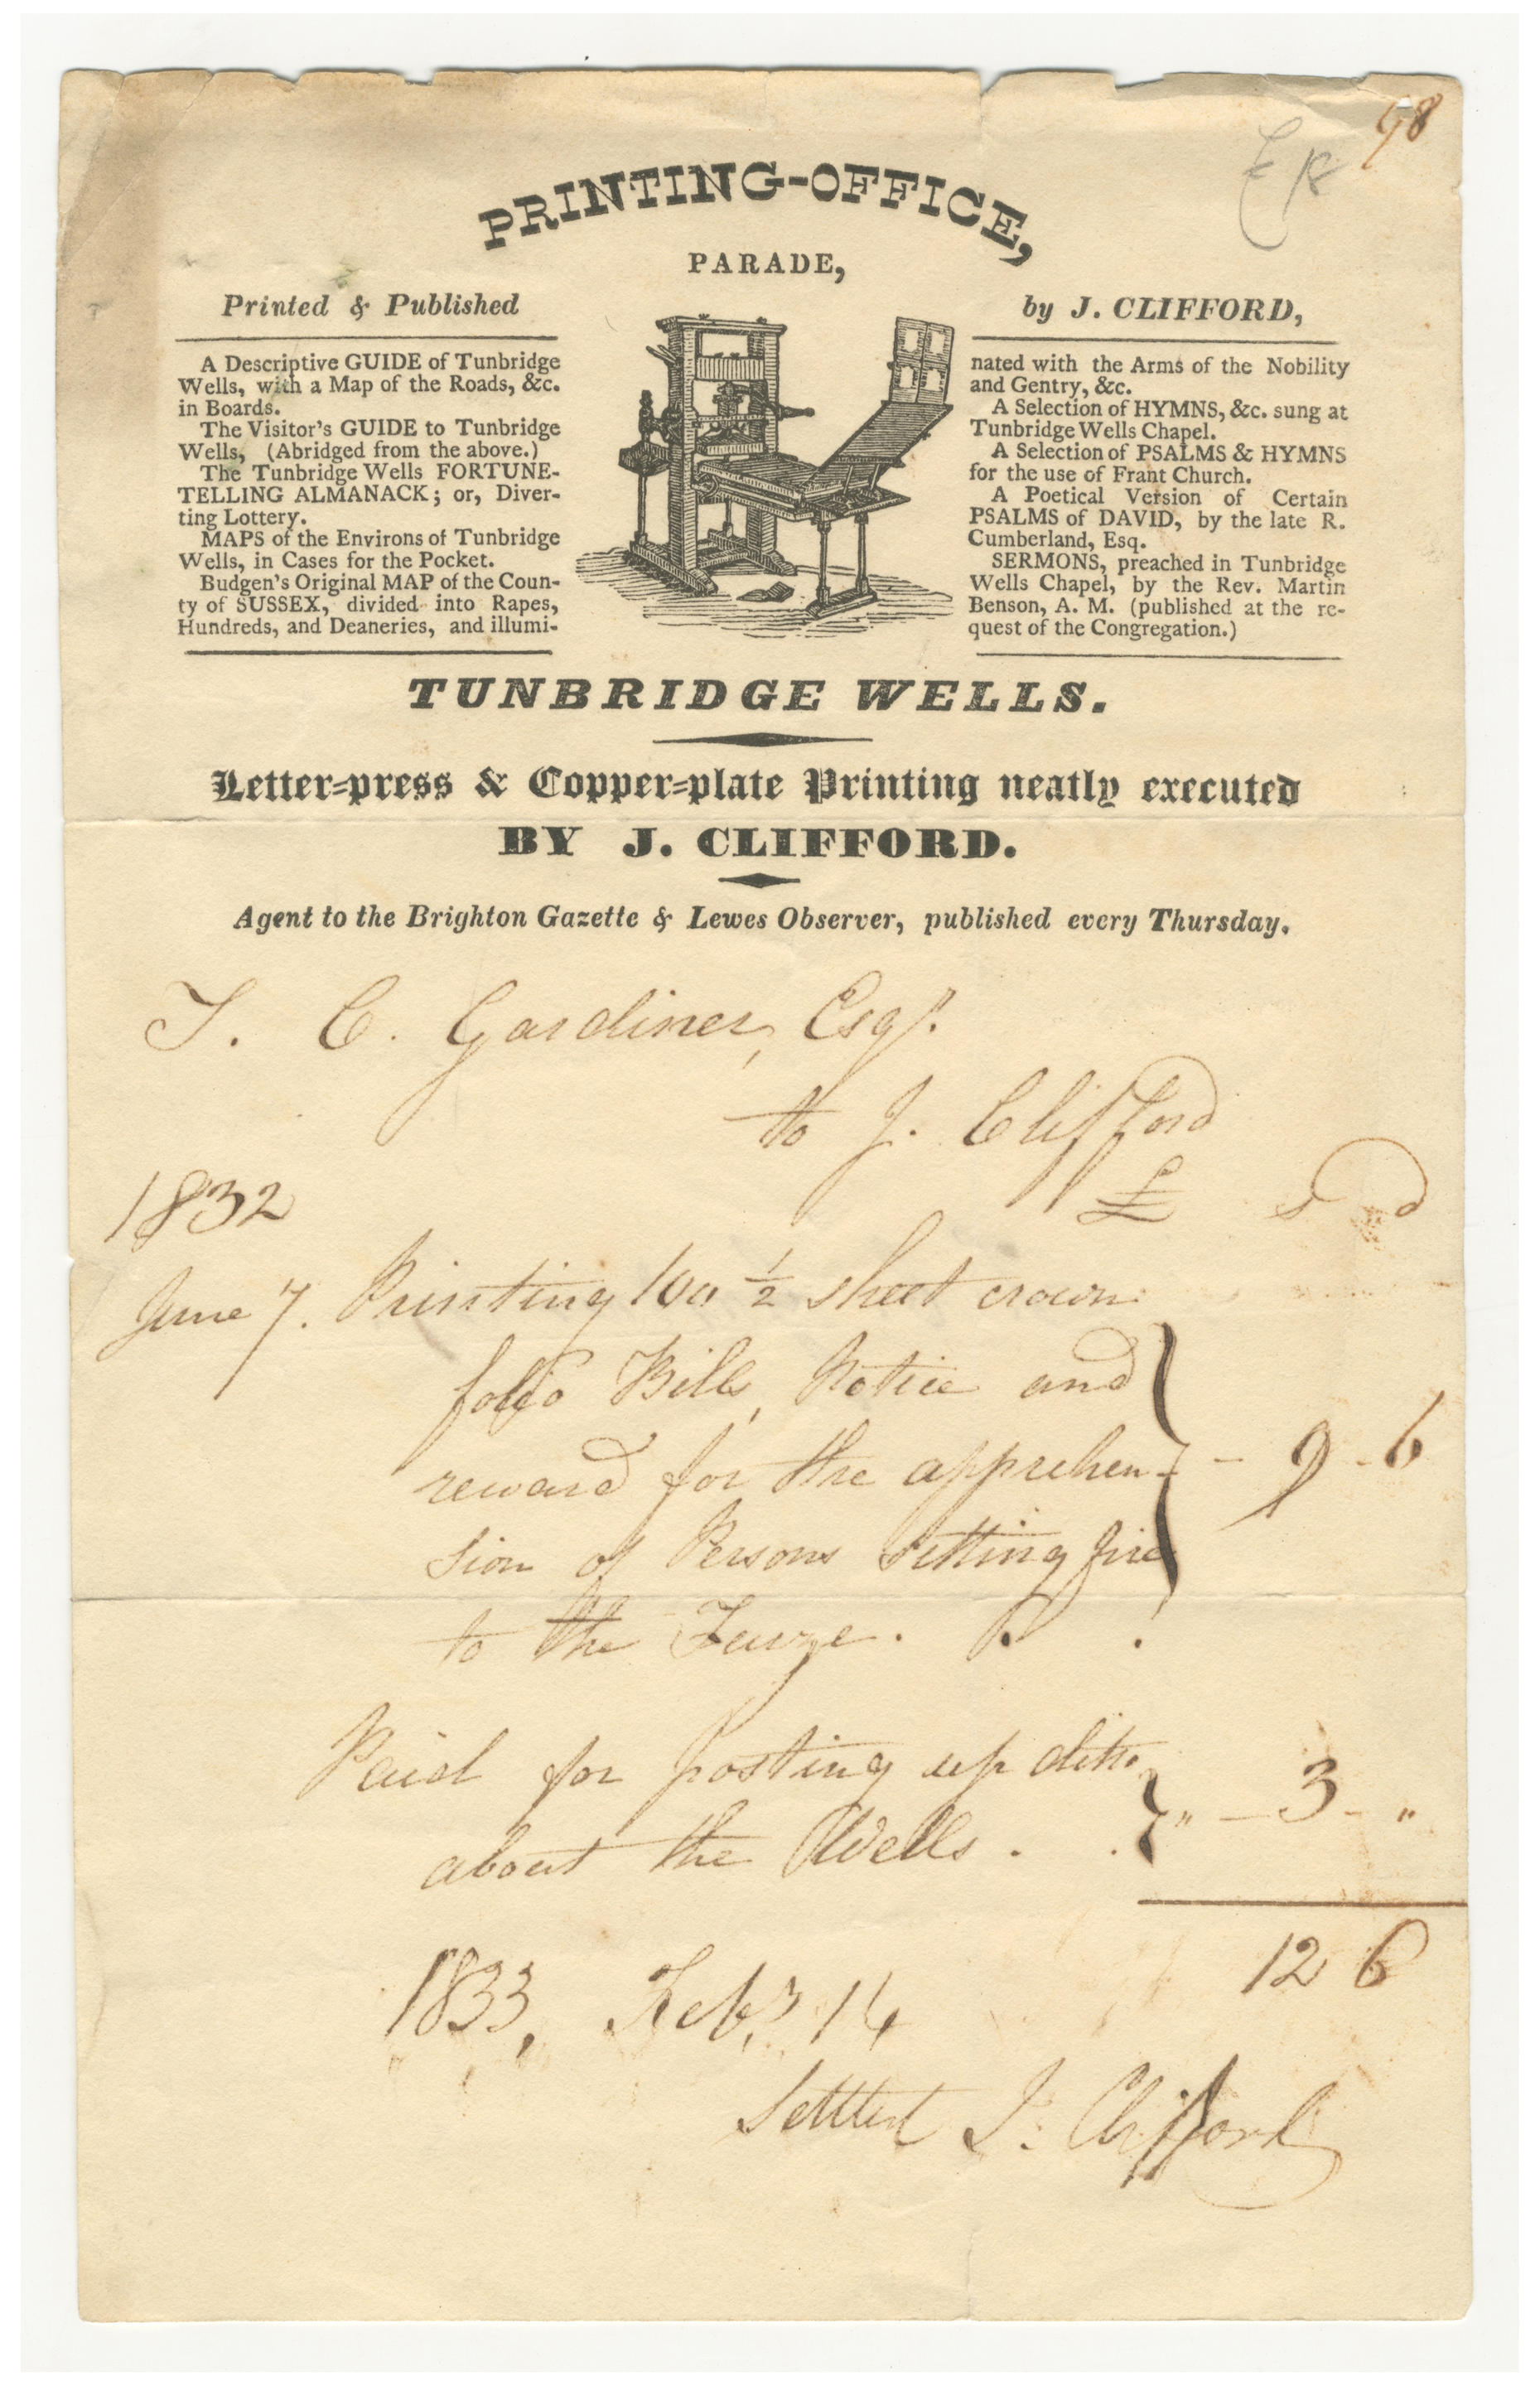 98
PRINTING-OFFICE,
PARADE,
Printed & Published
A Descriptive GUIDE of Tunbridge
Wells, with a Map of the Roads, &c.
in Boards.
The Visitor's GUIDE to Tunbridge
Wells, (Abridged from the above.)
The Tunbridge Wells FORTUNE-
TELLING ALMANACK; or, Diver-
ting Lottery.
MAPS of the Environs of Tunbridge
Wells, in Cases for the Pocket.
Budgen's Original MAP of the Coun-
ty of SUSSEX, divided into Rapes,
Hundreds, and Deaneries, and illumi-
by J. CLIFFORD,
nated with the Arms of the Nobility
and Gentry, &c.
A Selection of HYMNS, &c. sung at
Tunbridge Wells Chapel.
A Selection of PSALMS & HYMNS
for the use of Frant Church.
A Poetical Version of Certain
PSALMS of DAVID, by the late R.
Cumberland, Esq.
SERMONS, preached in Tunbridge
Wells Chapel, by the Rev. Martin
Benson, A. M. (published at the re-
quest of the Congregation.)
TUNBRIDGE WELLS.
Letter-press & Copper-plate Printing neatly executed
BY J. CLIFFORD.
Agent to the Brighton Gazette & Lewes Observer, published every Thursday.
T. C. Gardiner, Esqr.
to J. Clifford
1832 £ s d
June 7. Printing 100 ½ sheet crown
folio Bills, Notice and
reward for the apprehen- - 9 - 6
sion of Persons setting fire
to the Furze.
Paid for posting up ditto
about the Wells. . " - 3 - "
12 6
1833, Feby 14
Settled J. Clifford